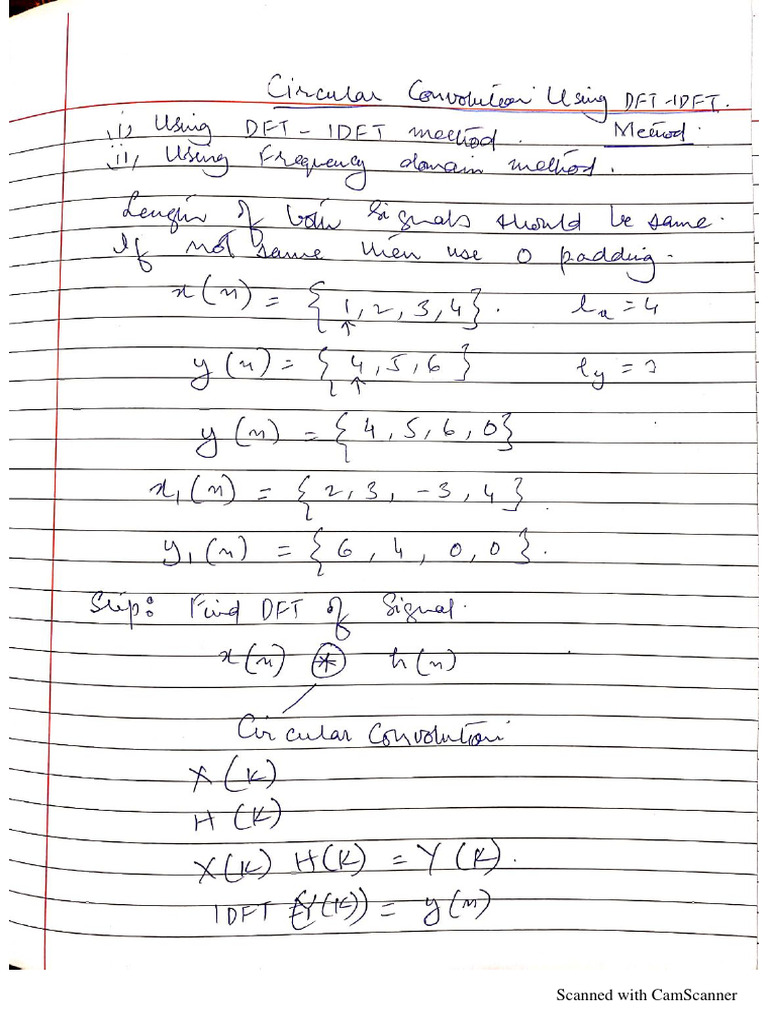 Circular Convolution Using DFT-IDFT.
Method.
i) Using DFT - IDFT method.
ii, Using Frequency domain method.
Length of both Signals should be same.
If not same then use 0 padding.
x(n) = { 1, 2, 3, 4 }. lx = 4
↑
y(n) = { 4, 5, 6 } ly = 3
↑
y(n) = { 4, 5, 6, 0 }
x₁(n) = { 2, 3, -3, 4 }.
y₁(n) = { 6, 4, 0, 0 }.
Step: Find DFT of Signal.
x(n) ⊛ h(n)
Circular Convolution
X(K)
H(K)
X(K) H(K) = Y(K).
IDFT (Y(K)) = y(n)
Scanned with CamScanner